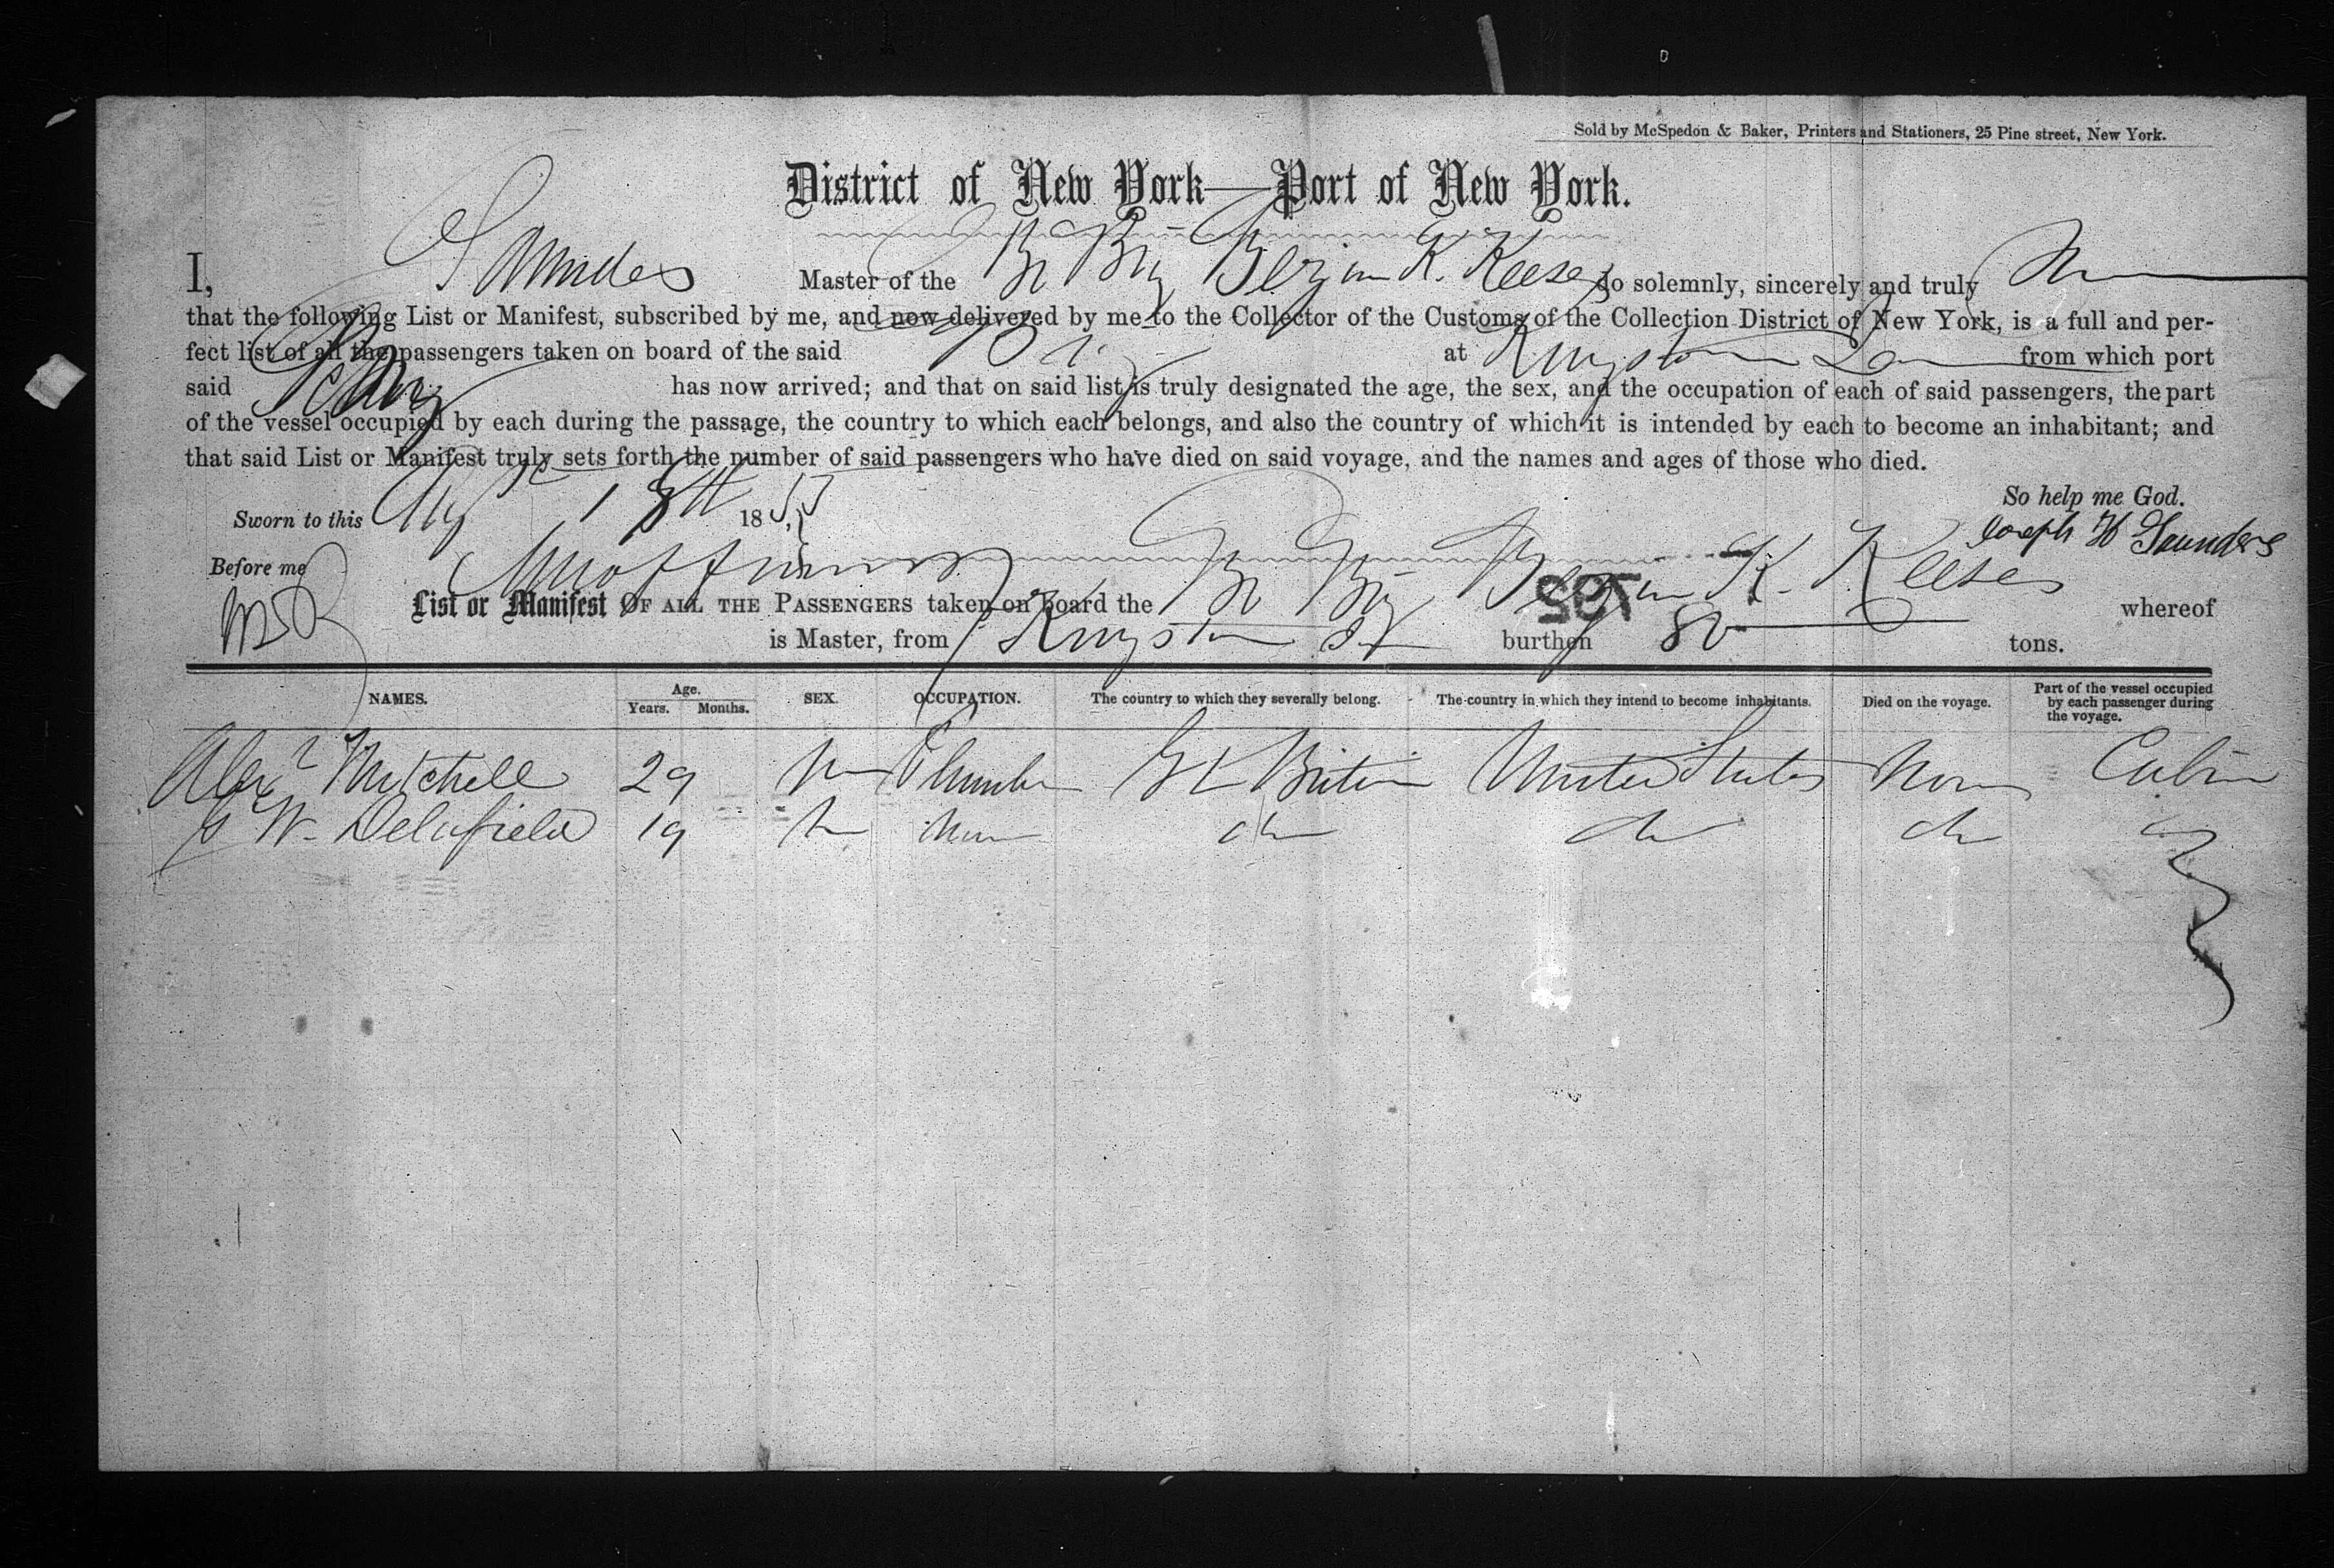 Sold by McSpedon & Baker, Printers and Stationers, 25 Pine street, New York.
District of New York—Port of New York.
I, Saunders Master of the Br Brig Benjn K. Reeses do solemnly, sincerely and truly
that the following List or Manifest, subscribed by me, and now delivered by me to the Collector of the Customs of the Collection District of New York, is a full and per-
fect list of all the passengers taken on board of the said Brig at Kingston Ja from which port
said Brig has now arrived; and that on said list is truly designated the age, the sex, and the occupation of each of said passengers, the part
of the vessel occupied by each during the passage, the country to which each belongs, and also the country of which it is intended by each to become an inhabitant; and
that said List or Manifest truly sets forth the number of said passengers who have died on said voyage, and the names and ages of those who died.
So help me God.
Sworn to this 18th 1855
Joseph H Saunders
Before me
List or Manifest OF ALL THE PASSENGERS taken on board the Br Brig Benjn K. Reeses whereof
is Master, from Kingston burthen 80 tons.
NAMES. Age. Years. Months. SEX. OCCUPATION. The country to which they severally belong. The country in which they intend to become inhabitants. Died on the voyage. Part of the vessel occupied by each passenger during the voyage.
Alexr Mitchell 29 M Plumber Gt Britain United States None Cabin
W. Delafield 19 M None do do do